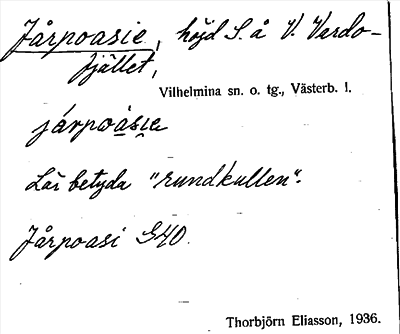 Jårpoasie, höjd S. å V. Vardo-
fjället,
Vilhelmina sn. o. tg., Västerb. l.
járpoåsi̯e
Lär betyda "rundkullen".
Jårpoasi G40.
Thorbjörn Eliasson, 1936.